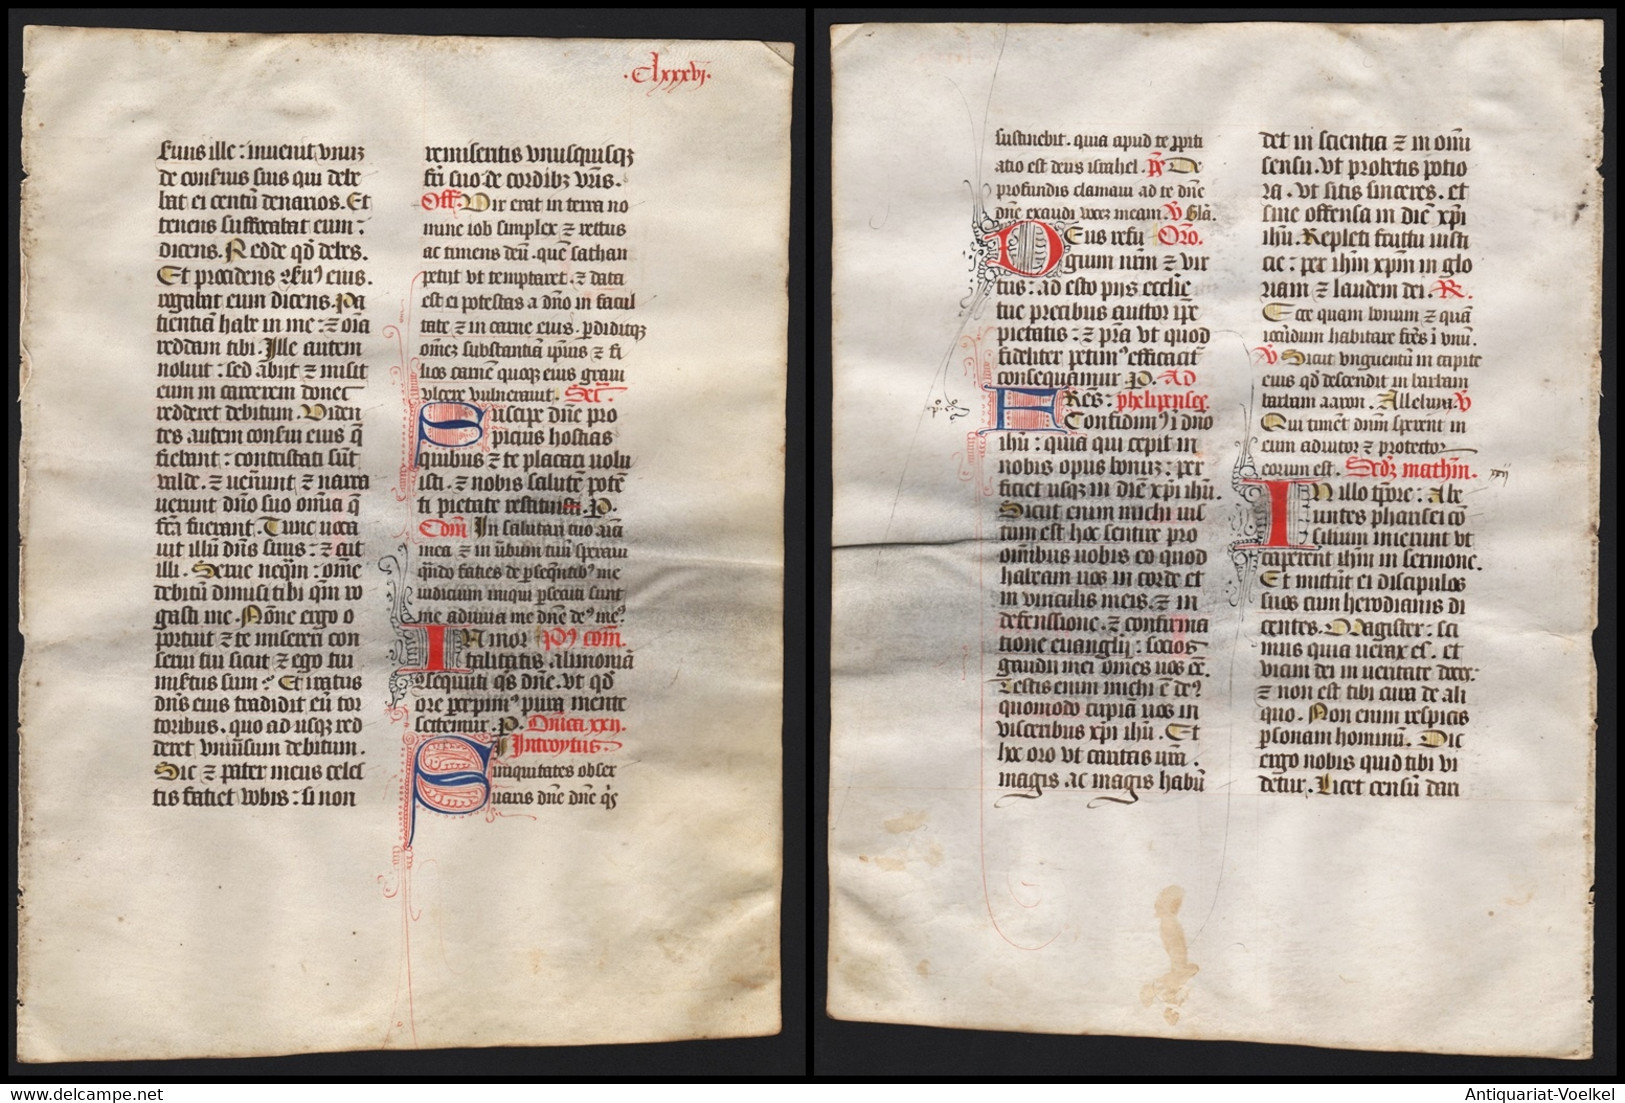 .Clxxxvj.
servus ille: invenit vnuz
de conservis suis qui debe
bat ei centū denarios. Et
tenens suffocabat eum:
dicens. Redde qd debes.
Et procidens servꝰ eius.
rogabat eum dicens. Pa
tientiā habe in me: ꞇ oīa
reddam tibi. Ille autem
noluit: sed abijt ꞇ misit
eum in carcerem donec
redderet debitum. Viden
tes autem conservi eius q̄
fiebant: contristati sūt
valde. ꞇ venerūt ꞇ narra
verunt dn̄o suo omīa q̄
fc̄a fuerant. Tunc voca
vit illū dn̄s suus: ꞇ ait
illi. Serve neq̄m: om̄e
debitū dimisi tibi qm̄ ro
gasti me. Nōne ergo o
portuit ꞇ te misereri con
servi tui sicut ꞇ ego tui
misertus sum? Et iratus
dn̄s eius tradidit eū tor
toribus. quo ad usqꝫ red
deret vniūsum debitum.
Sic ꞇ pater meus celes
tis faciet vobis: si non
remiseritis vnusquisqꝫ
fr̄i suo de cordibꝫ vr̄is.
Off. Vir erat in terra no
mine iob simplex ꞇ rectus
ac timens deū. que sathan
petijt vt temptaret. ꞇ data
est ei potestas a dn̄o in facul
tate ꞇ in carne eius. ꝑdiditqꝫ
om̄ez substantiā ipīus ꞇ fi
lios carnē quoqꝫ eius gravi
vlcere vulneravit. Sec̄.
Suscipe dn̄e pro
picius hostias
quibus ꞇ te placari volu
isti. ꞇ nobis salutē potē
ti pietate restitui. P.
Com̄ In salutari tuo aīa
mea ꞇ in v̄bum tuū speravi
qn̄do facies de ꝑsequētibꝰ me
iudicium iniqui ꝑsecuti sunt
me adiuva me dn̄e deꝰ meꝰ.
Inmor Pꝰ com̄.
talitatis alimoniā
ꝯsequuti qs̄ dn̄e. vt qd̄
ore ꝑcepimꝰ pura mente
sectemur. P. Dn̄ica.xxij.
Introytus.
Si iniquitates obser
varis dn̄e dn̄e q̇s
sustinebit. quia apud te ꝓpiti
atio est deus israhel. Ps̄ De
profundis clamavi ad te dn̄e
dn̄e exaudi vocez meam. V Glā.
Deus refu Oro.
gium nr̄m ꞇ vir
tus: ad esto pijs ecclīe
tue precibus auctor ip̄e
pietatis: ꞇ pr̄a vt quod
fideliter petimꝰ efficacit̄
consequamur P. Ad
Fr̄es: phelipenses.
Confidimꝰ ī dn̄o
ihū: quia qui cepit in
nobis opus bonuz: per
ficiet usqꝫ in diē xp̄i ihū.
Sicut enim michi ius
tum est hoc sentire pro
omībus vobis eo quod
habeam vos in corde et
in vinculis meis. ꞇ in
defenssione. ꞇ confirma
tione evanglij: socios
gaudij mei om̄es vos ē̄e.
Testis enim michi ē deꝰ
quomodo cupiā vos in
visceribus xp̄i ihū. Et
hoc oro vt caritas vr̄m
magis ac magis habū
det in scientia ꞇ in omī
sensu. Vt probetis potio
ra. Vt sitis sinceres. et
sine offensa in diē xp̄i
ihū. Repleti fructu iusti
cie: per ihm̄ xpm̄ in glo
riam ꞇ laudem dei. R.
Ecce quam bonum ꞇ quā
iocūdum habitare frēs ī vnū.
V Sicut vnguentū in capite
eius qd̄ descendit in barbam
barbam aaron. Alleluya V
Qui timēt dn̄m sperent in
eum adiutor ꞇ protector
eorum est. Sedꝫ mathm̄. xxij
In illo tp̄ore: Abe
untes pharisei cō
silium inierunt vt
caperent ihm̄ in sermone.
Et mittūt ei discipulos
suos cum herodianis di
centes. Magister: sci
mus quia verax es. et
viam dei in veritate doces:
ꞇ non est tibi cura de ali
quo. Non enim respicis
ꝑsonam hominū. Dic
ergo nobis quid tibi vi
detur. Licet censū dari
Antiquariat-Voelkel